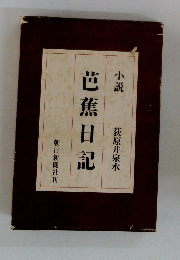 小説
荻原井泉水
芭蕉日記
朝日新聞社刊